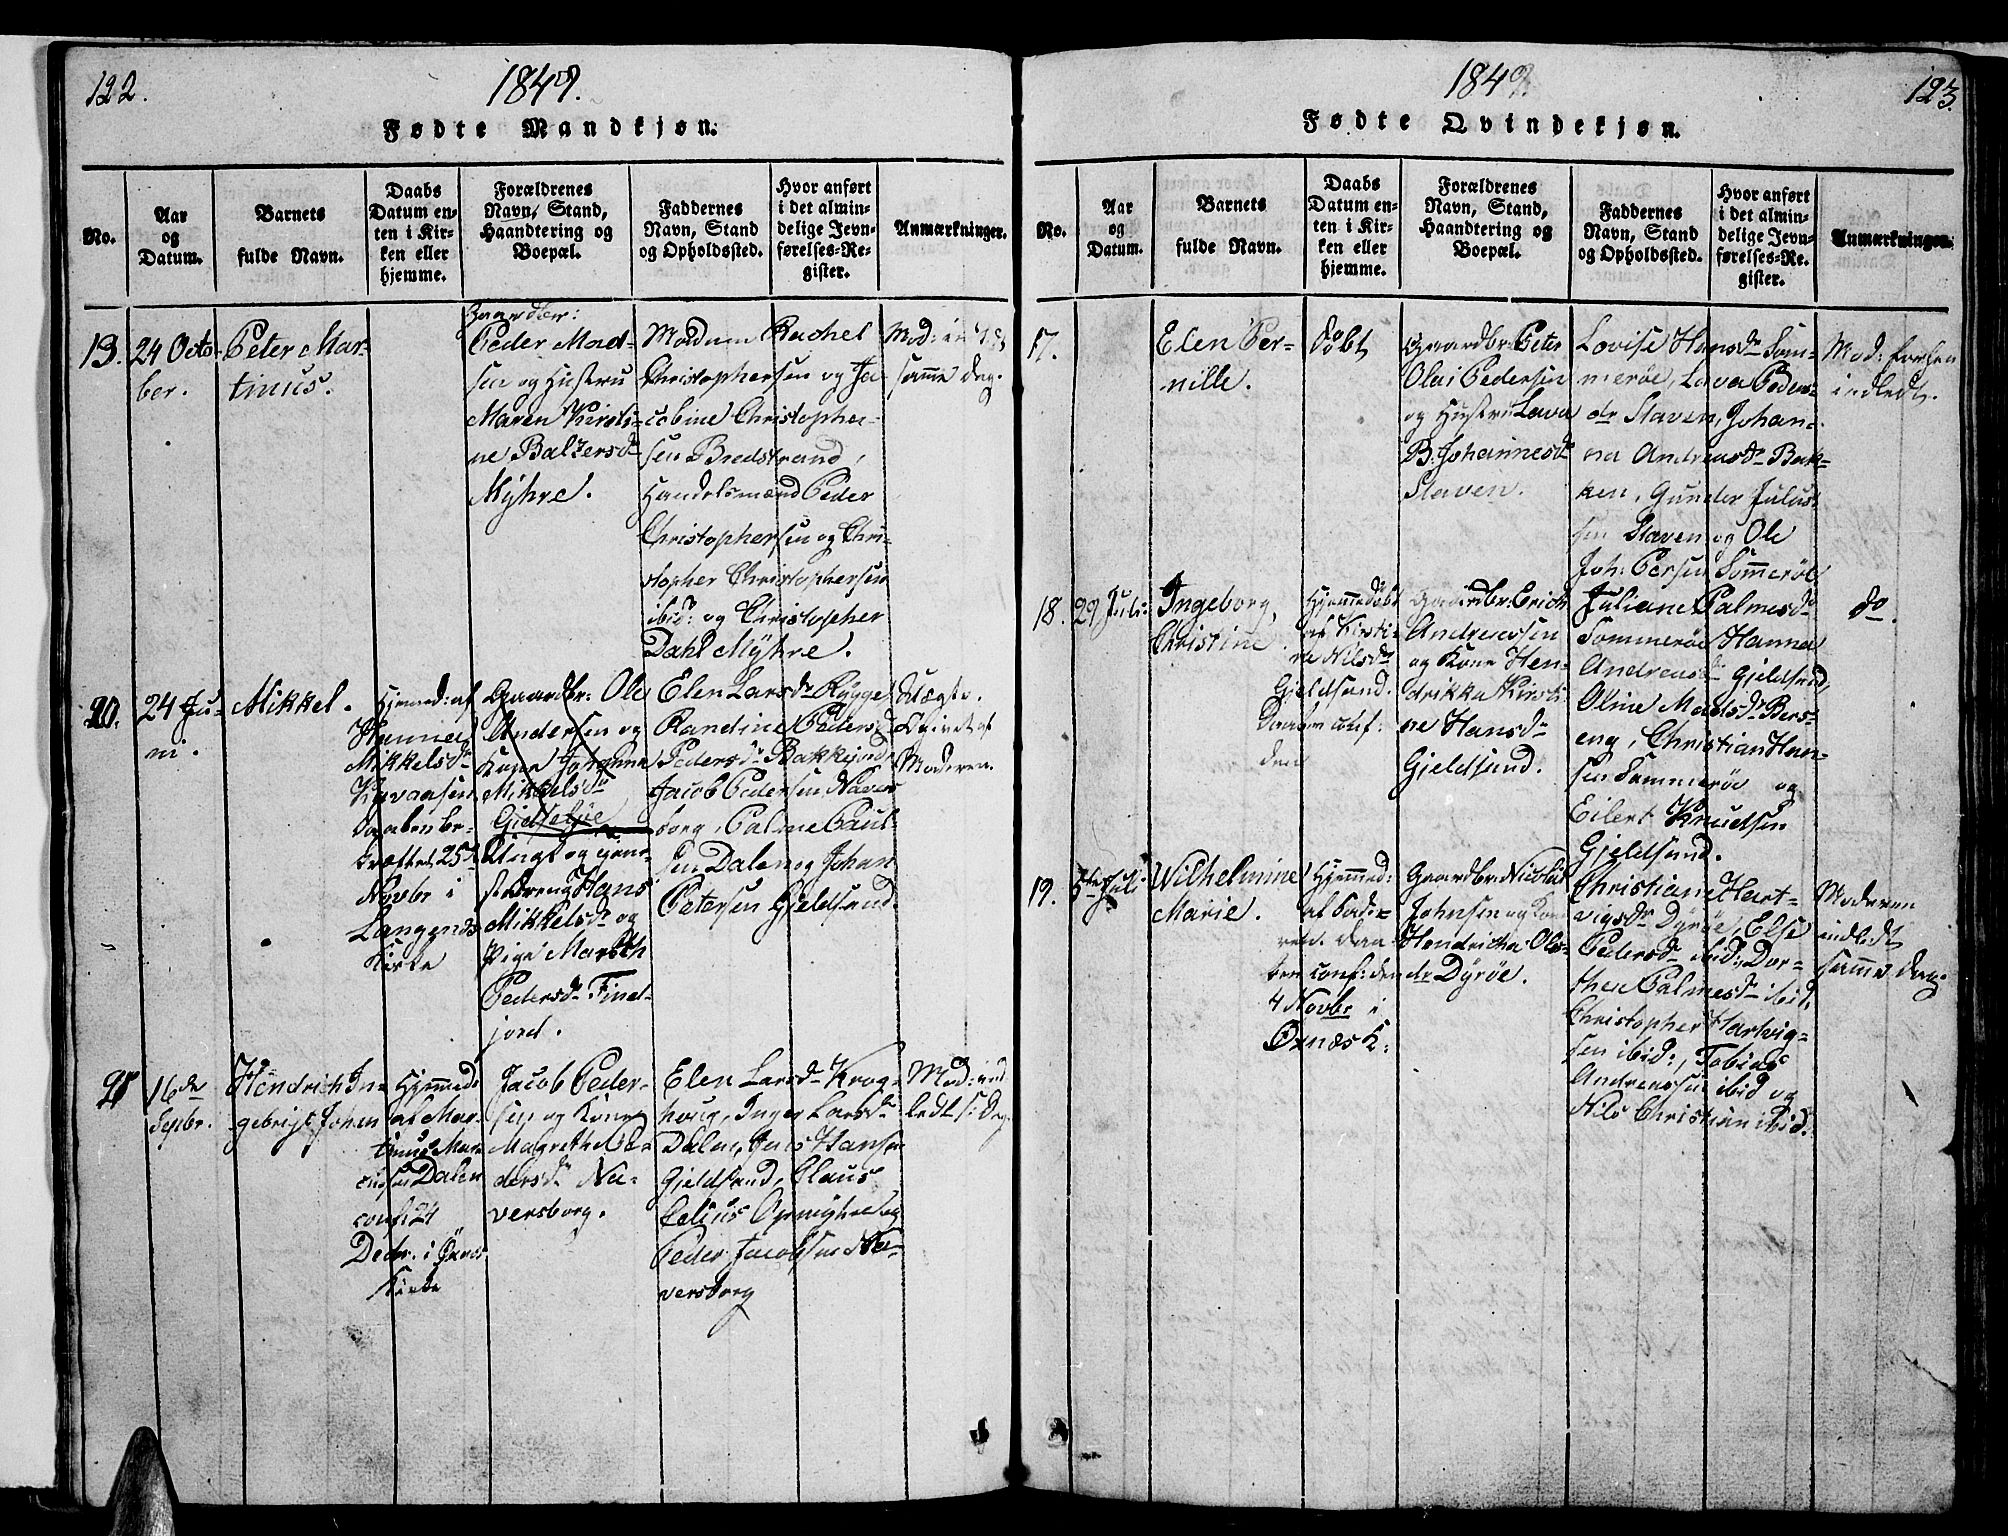 122.
1849.
Fødte Mandkjøn.
No.
Aar
og
Datum.
Barnets
fulde Navn.
Daabs
Datum en-
ten i Kir-
ken eller
hjemme.
Forældrenes
Navn, Stand,
Haandtering og
Boepæl.
Faddernes
Navn, Stand
og Opholdssted.
Hvor anført
i det almin-
delige Jevn-
førelses-Re-
gister.
Anmærkninger.
24 Octo-
ber.
Peter Mar-
tinus.
Gaardbr:
Peder Mad-
sen og Hustru
Maren Kirsti-
ne Baltzersdr
Myhre.
Madam Rachel
Christophersen og Ja-
cobine Christopher-
sen Bredstrand,
Handelsmænd Peder
Christophersen og Chri-
stopher Christophersen
ibid: og Christopher
Dahl Myhre.
samme dag.
20.
24 Ju-
ni.
Mikkel.
Hjemmed: af
Hanna
Mikkelsdr
Daaben be-
kræftet 25
Novbr i
Langenæs
Kirke
Gaardbr: Ole
Andersen og
Kone Johanna
Mikkelsdr
Ungk og
Hans
Mikkelsen og
Pige Mareth
Pedersdr Finel-
jord.
Elen Larsdr Rygge,
Randine Peders
Pedersdr Bakkejord
Jacob Pedersen Navers-
borg, Palme Paul-
sen Dalen og Johan
Petersen Gjeldsand
Uægte.
Opgivet af
Moderen.
16de
Septbr.
Hendrich In-
gebrigt Johan
Hjemmed:
af Mar-
tinus Mar-
Dalen
conf: 24
Decbr. i Øxnes
Kirke
Jacob Peder-
sen og Kone
Magrethe Pe-
dersdr Na-
versborg.
Elen Larsdr Krog-
houg, Inger Larsdr
Dalen, Jens Hansen
Gjeldsand, Claus
Celius Opmyhre og
Peder Jacobsen Na-
versborg
Mod: ind-
ledt s: Dag.
1849.
123.
Fødte Qvindekjøn.
No.
Aar
og
Datum.
Barnets
fulde Navn.
Daabs
Datum en-
ten i Kir-
ken eller
hjemme.
Forældrenes
Navn, Stand,
Haandtering og
Boepæl.
Faddernes
Navn, Stand
og Opholdssted.
Hvor anført
i det almin-
delige Jevn-
førelses-Re-
gister.
Anmærkninger.
17.
Elen Per-
nille.
døbt
Gaardbr: Peter
Olai Pedersen
og Hustru Lava
B. Johannesdr
Staven.
Lovise Hansdr Som-
merøe, Lava Peders-
dr Staven, Johan-
na Andreasdr Bak-
ken, Gunder Julius-
sen Staven og Ole
Joh: Persen Sommerøe
Mod: forhen
indledt.
18.
29 Juli
Ingeborg
Christine
Hjemmedøbt
af Kirsti-
ne Nilsdr
Gjeldsand.
Daaben conf:
den
Gaardbr: Erich
Andreassen
og Kone Hen-
drikka Kirsti-
ne Hansdr
Gjeldsand.
Juliane Palmesdr
Sommerøe, Hanna
Andreasdr Gjeldsand,
Oline Madsdr Bers-
eng, Christian Han-
sen Sommerøe og
Eilert Knudsen
Gjeldsand.
do.
19.
5te Juli
Wilhelmine
Marie.
Hjemmed:
af Fade-
ren. Daa-
ben conf: den
4 Novbr i
Øxnæs K:
Gaardbr: Nicolai
Johnsen og Kone
Hendricha Ols-
dr Dyrøe.
Christiane Hart-
vigsdr Dyrøe, Else
Pedersdr ibid:, Dor-
thea Palmesdr ibid,
Christopher Hartvig-
sen ibid:, Tobias
Andreassen ibid og
Nils Christian ibid.
Moderen
indledt
samme dag.